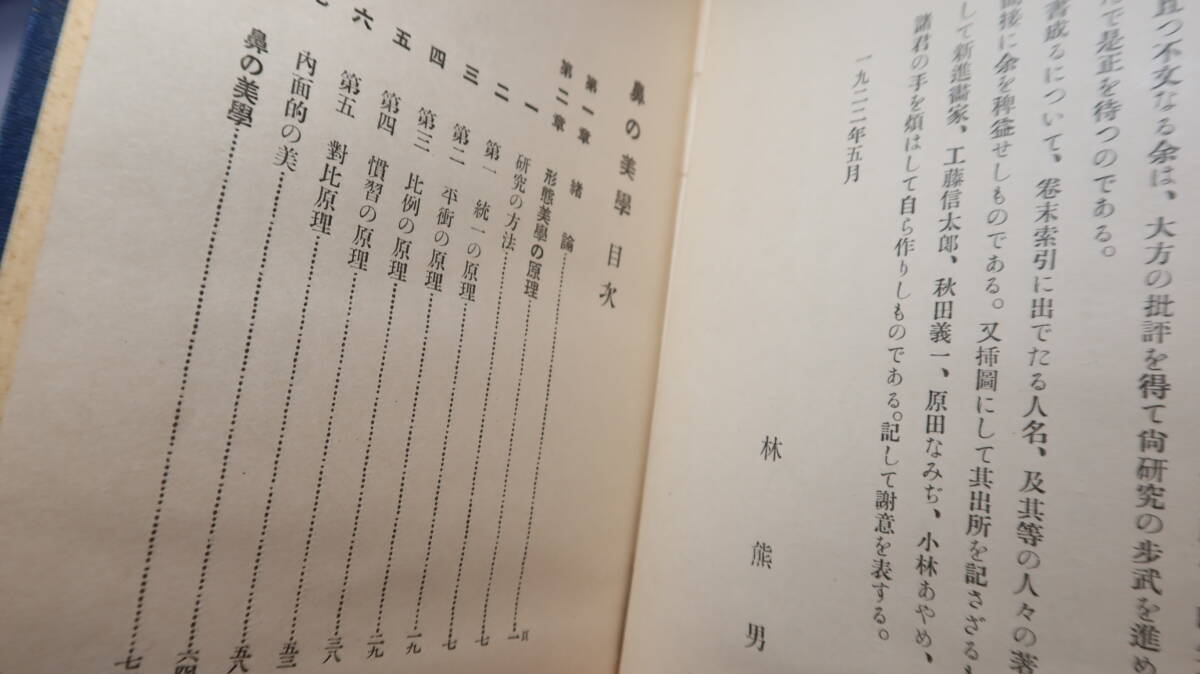 且つ不文なる余は、大方の批評を得て尙硏究の步武を進め
で是正を待つのである。
書成るについて、卷末索引に出でたる人名、及其等の人々の著
間接に余を稗益せしものである。又揷圖にして其出所を記さざるも
して新進畵家、工藤信太郎、秋田義一、原田なみぢ、小林あやめ、
諸君の手を煩はして自ら作りしものである。記して謝意を表する。
一九二二年五月
林熊男
鼻の美學目次
第一章 緖論……一頁
第二章 形態美學の原理……七
一 硏究の方法……七
二 第一 統一の原理……一九
三 第二 平衡の原理……二九
四 第三 比例の原理……三八
五 第四 慣習の原理……五三
六 第五 對比原理……五八
內面的の美……六四
鼻の美學……七